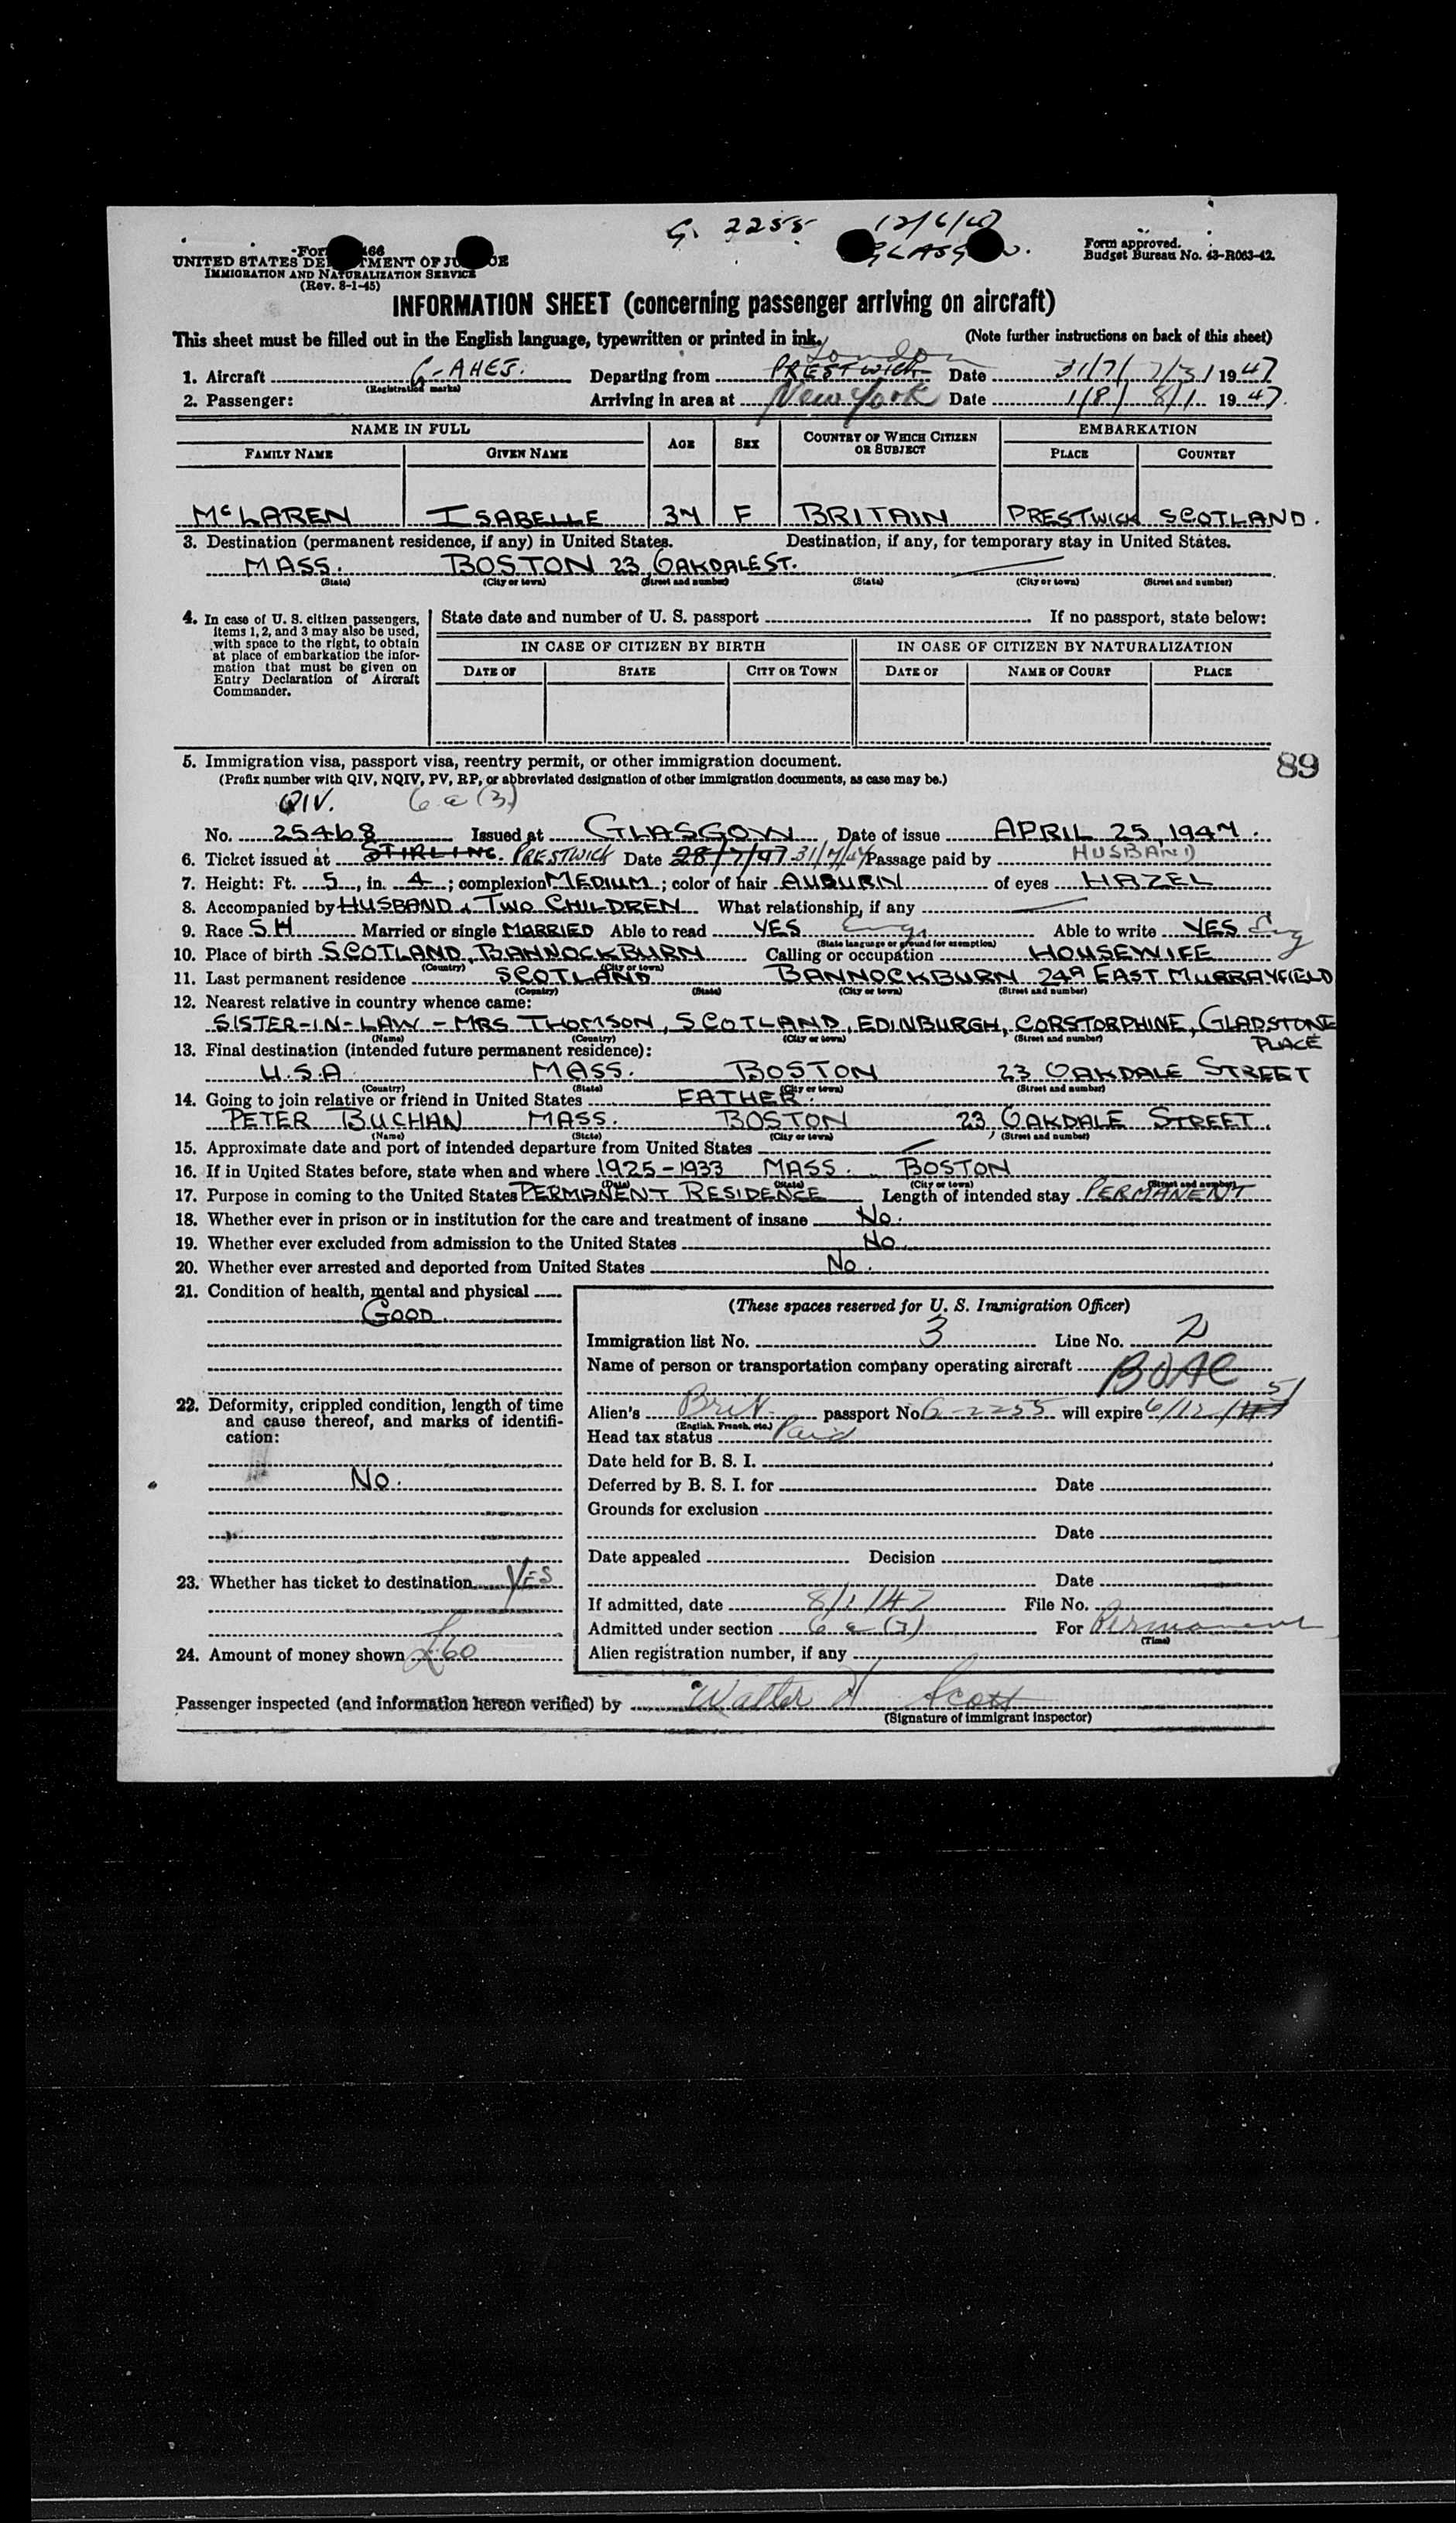 G. 2255 12/6/47
GLASGOW.
Form 466
UNITED STATES DEPARTMENT OF JUSTICE
IMMIGRATION AND NATURALIZATION SERVICE
(Rev. 8-1-45)
Form approved.
Budget Bureau No. 43-R063-42.
INFORMATION SHEET (concerning passenger arriving on aircraft)
This sheet must be filled out in the English language, typewritten or printed in ink. (Note further instructions on back of this sheet)
London
1. Aircraft G-AHEJ. Departing from PRESTWICK Date 31/7/ 7/31 1947
(Registration marks)
2. Passenger: Arriving in area at New York Date 1/8/ 8/1 1947.
NAME IN FULL AGE SEX COUNTRY OF WHICH CITIZEN OR SUBJECT EMBARKATION
FAMILY NAME GIVEN NAME PLACE COUNTRY
McLAREN ISABELLE 34 F BRITAIN PRESTWICK SCOTLAND.
3. Destination (permanent residence, if any) in United States. Destination, if any, for temporary stay in United States.
MASS. BOSTON 23 OAKDALE ST.
(State) (City or town) (Street and number) (State) (City or town) (Street and number)
4. In case of U. S. citizen passengers, items 1, 2, and 3 may also be used, with space to the right, to obtain at place of embarkation the information that must be given on Entry Declaration of Aircraft Commander.
State date and number of U. S. passport If no passport, state below:
IN CASE OF CITIZEN BY BIRTH IN CASE OF CITIZEN BY NATURALIZATION
DATE OF STATE CITY OR TOWN DATE OF NAME OF COURT PLACE
5. Immigration visa, passport visa, reentry permit, or other immigration document. 89
(Prefix number with QIV, NQIV, PV, RP, or abbreviated designation of other immigration documents, as case may be.)
QIV. 6 a (3)
No. 25468 Issued at GLASGOW Date of issue APRIL 25, 1947.
6. Ticket issued at STIRLING. PRESTWICK Date 28/7/47 31/7/47 Passage paid by HUSBAND
7. Height: Ft. 5, in. 4; complexion MEDIUM; color of hair AUBURN of eyes HAZEL
8. Accompanied by HUSBAND & TWO CHILDREN What relationship, if any
9. Race S.H Married or single MARRIED Able to read YES Eng. Able to write YES Eng
(State language or ground for exemption)
10. Place of birth SCOTLAND, BANNOCKBURN Calling or occupation HOUSEWIFE
(Country) (City or town)
11. Last permanent residence SCOTLAND BANNOCKBURN 24A EAST MURRAYFIELD
(Country) (State) (City or town) (Street and number)
12. Nearest relative in country whence came:
SISTER-IN-LAW - MRS THOMSON, SCOTLAND, EDINBURGH, CORSTORPHINE, GLADSTONE PLACE
(Name) (Country) (City or town) (Street and number)
13. Final destination (intended future permanent residence):
U.S.A. MASS. BOSTON 23 OAKDALE STREET
(Country) (State) (City or town) (Street and number)
14. Going to join relative or friend in United States FATHER.
PETER BUCHAN MASS. BOSTON 23 OAKDALE STREET.
(Name) (State) (City or town) (Street and number)
15. Approximate date and port of intended departure from United States
16. If in United States before, state when and where 1925-1933 MASS. BOSTON
(Date) (State) (City or town) (Street and number)
17. Purpose in coming to the United States PERMANENT RESIDENCE Length of intended stay PERMANENT
18. Whether ever in prison or in institution for the care and treatment of insane No.
19. Whether ever excluded from admission to the United States No.
20. Whether ever arrested and deported from United States No.
21. Condition of health, mental and physical
GOOD.
22. Deformity, crippled condition, length of time and cause thereof, and marks of identification:
No.
23. Whether has ticket to destination YES
24. Amount of money shown £60
(These spaces reserved for U. S. Immigration Officer)
Immigration list No. 3 Line No. 2
Name of person or transportation company operating aircraft BOAC
Alien's Brit. passport No. G-2255 will expire 6/12/47 51
(English, French, etc.)
Head tax status Paid
Date held for B. S. I.
Deferred by B. S. I. for Date
Grounds for exclusion
Date
Date appealed Decision
Date
If admitted, date 8/1/47 File No.
Admitted under section 6 a (3) For Permanent
(Time)
Alien registration number, if any
Passenger inspected (and information hereon verified) by Walter H Scott
(Signature of immigrant inspector)